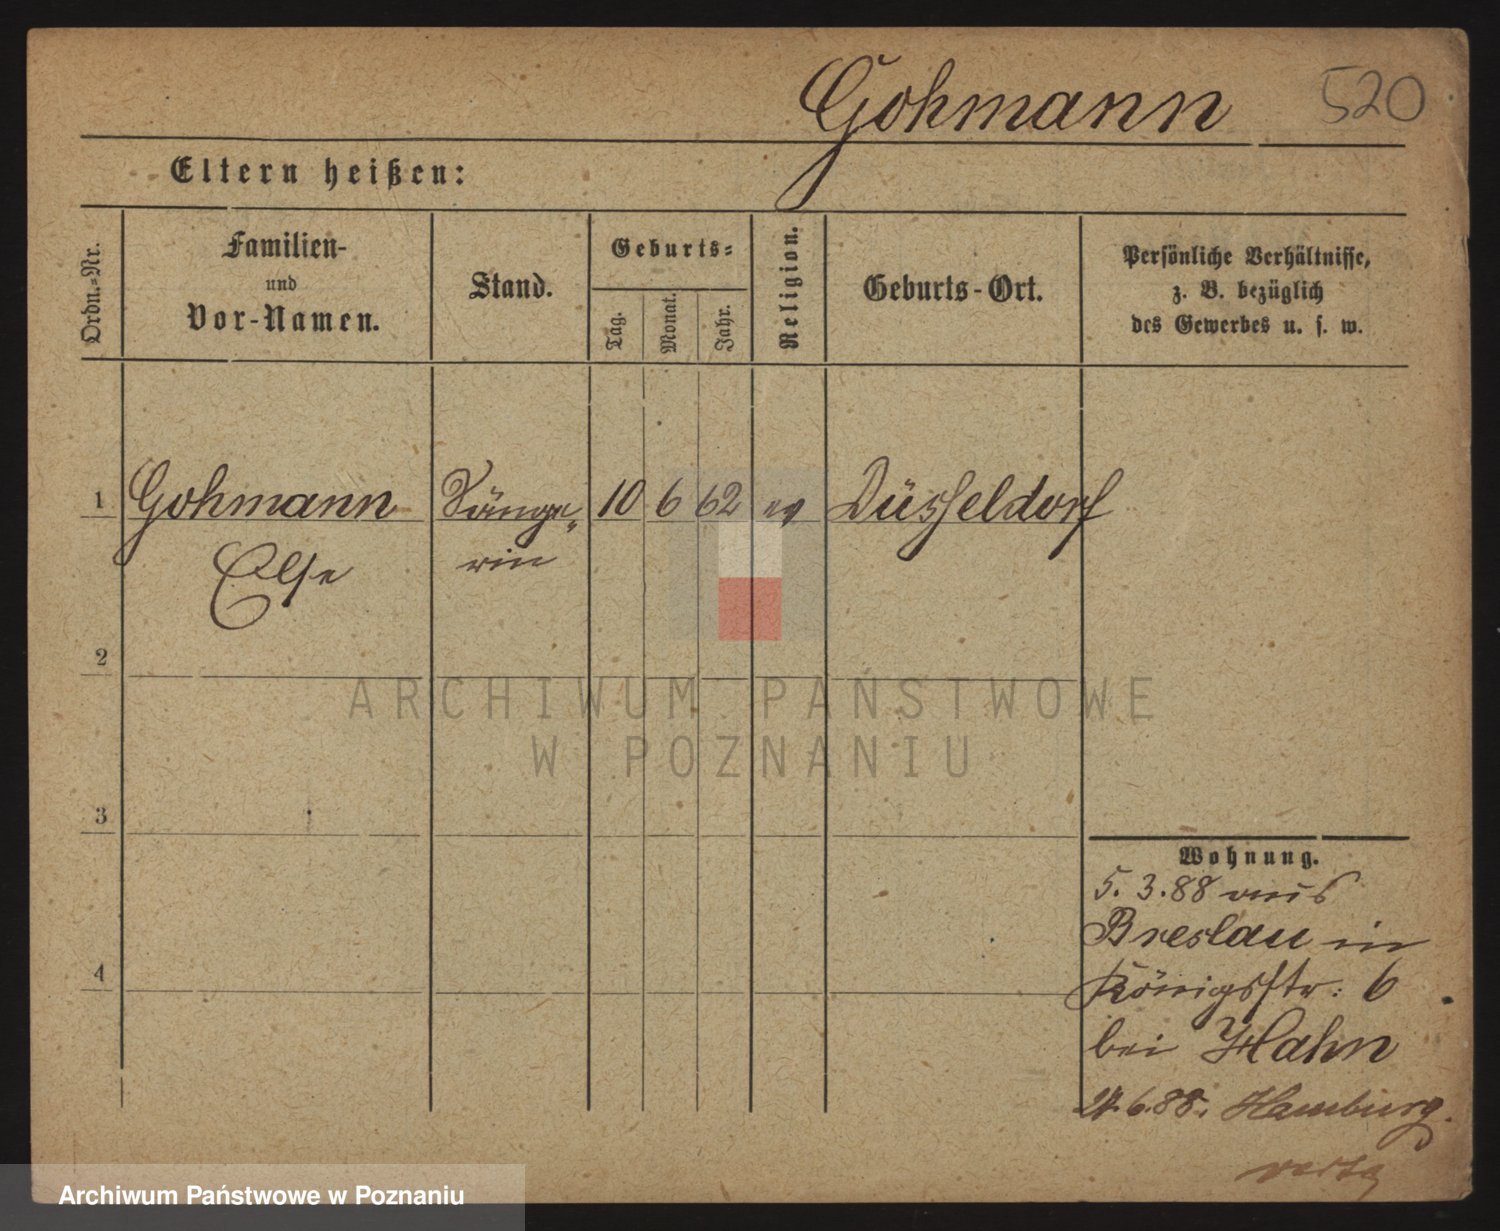 Gohmann 520
Eltern heißen:
Ordn.-Nr.
Familien-
und
Vor-Namen.
Stand.
Geburts-
Tag.
Monat.
Jahr.
Religion.
Geburts-Ort.
Persönliche Verhältnisse,
z. B. bezüglich
des Gewerbes u. s. w.
1 Gohmann Sänge- 10 6 62 ev Düsseldorf
Else rin
2
3
4
Wohnung.
5. 3. 88 aus
Breslau in
Königsstr. 6
bei Hahn
6.88. Hamburg.
ARCHIWUM PAŃSTWOWE
W POZNANIU
Archiwum Państwowe w Poznaniu